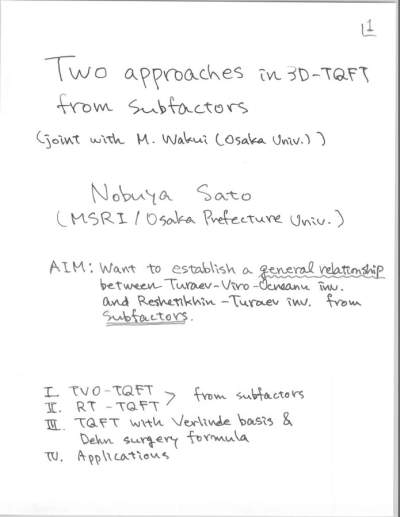 1
Two approaches in 3D-TQFT
from Subfactors
(joint with M. Wakui (Osaka Univ.))
Nobuya Sato
(MSRI / Osaka Prefecture Univ.)
AIM: Want to establish a general relationship
between Turaev-Viro-Ocneanu inv.
and Reshetikhin-Turaev inv. from
Subfactors.
I. TVO-TQFT
II. RT-TQFT > from subfactors
III. TQFT with Verlinde basis &
Dehn surgery formula
IV. Applications